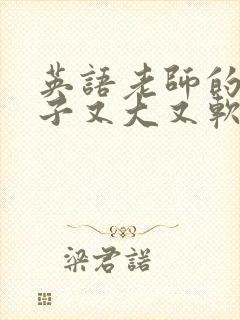 英語老師的
子又大又軟
梁君諾